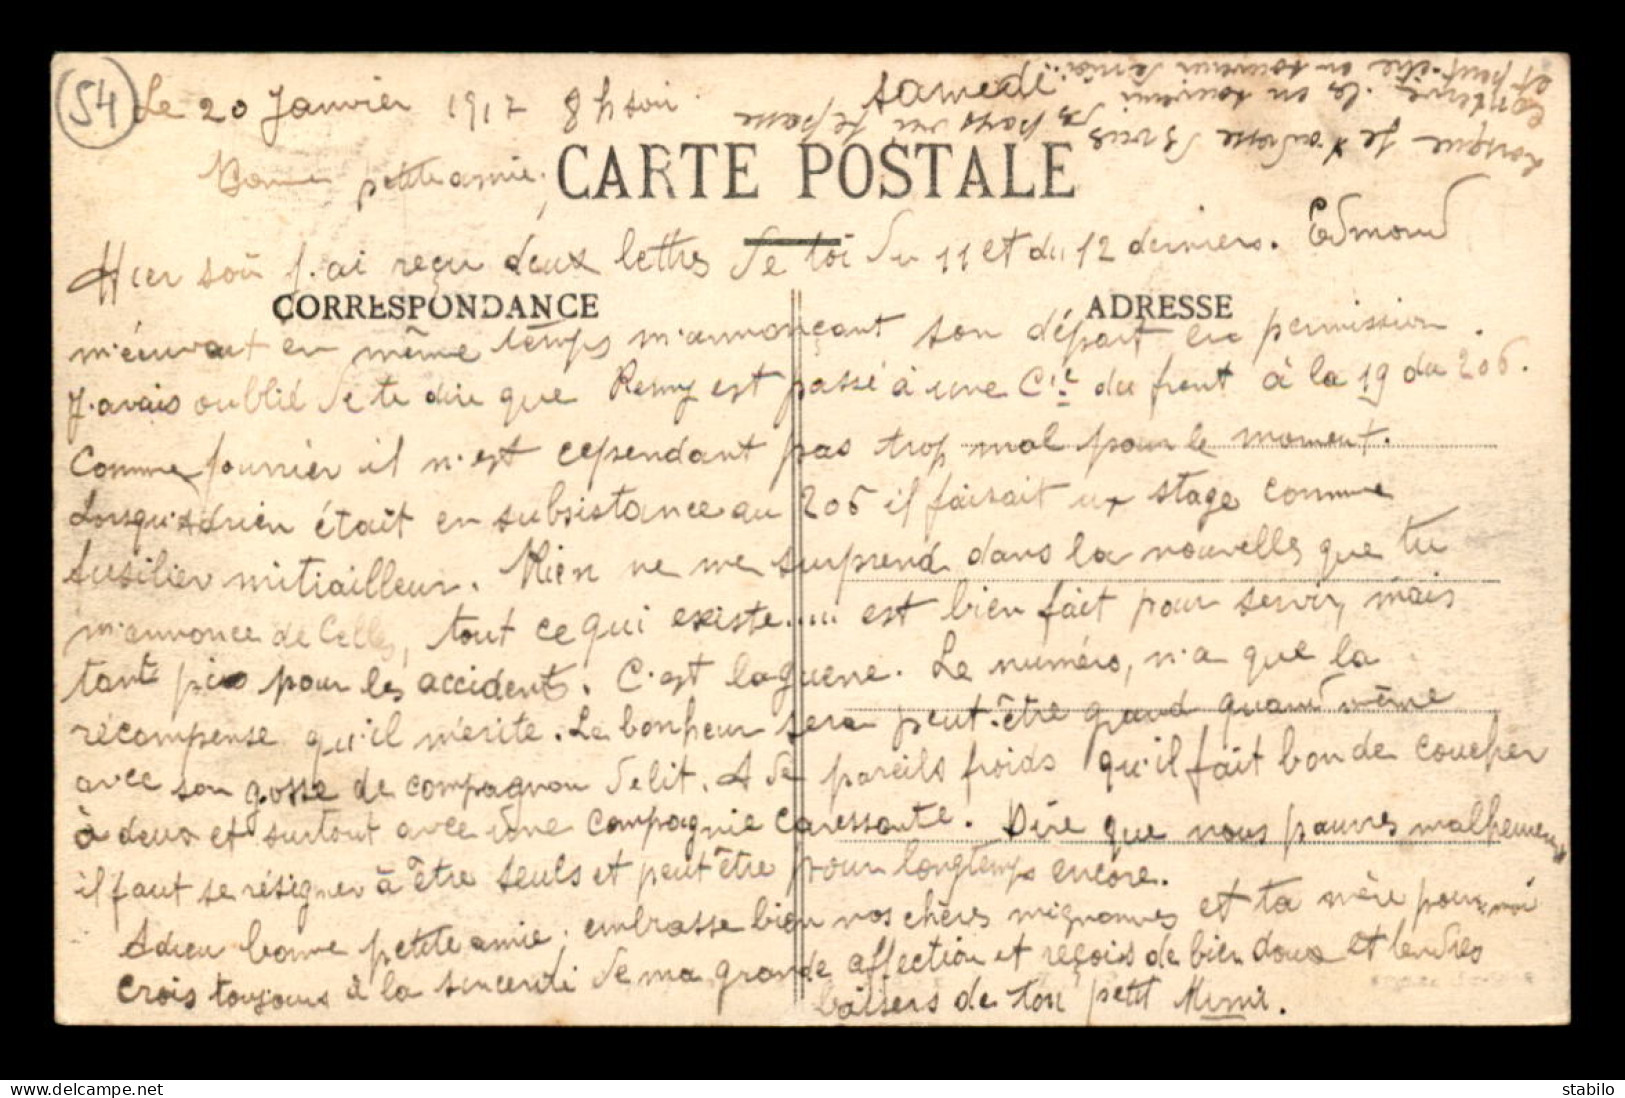 54
Le 20 Janvier 1917 8h soir. Samedi
Bonne petite amie,
CARTE POSTALE
Hier soir j'ai reçu deux lettres de toi du 11 et du 12 derniers. Edmond
CORRESPONDANCE
ADRESSE
m'écrivait en même temps m'annonçant son départ en permission.
J'avais oublié de te dire que Remy est passé à une Cie du front à la 19 du 206.
Comme fourrier il n'est cependant pas trop mal pour le moment.
Lorsqu'Adrien était en subsistance au 206 il faisait un stage comme
fusilier mitrailleur. Rien ne me surprend dans la nouvelle que tu
m'annonce de Celles, tout ce qui existe..... est bien fait pour servir, mais
tant pis pour les accidents. C'est la guerre. Le numéro, n'a que la
récompense qu'il mérite. Le bonheur sera peut-être grand quand même
avec son gosse de compagnon de lit. A de pareils froids qu'il fait bon de coucher
à deux et surtout avec une compagnie caressante. Dire que nous pauvres malheureux
il faut se résigner à être seuls et peut être pour longtemps encore.
Adieu bonne petite amie, embrasse bien nos chères mignonnes et ta mère pour moi
Crois toujours à la sincérité de ma grande affection et reçois de bien doux et tendres
baisers de ton petit Mimi.
Lorsque je t'adresse des vues des pays où je passe
conserve-les en souvenir
et peut-être en souvenir de moi...
delcampe.net
The Collectors Marketplace
stabilo